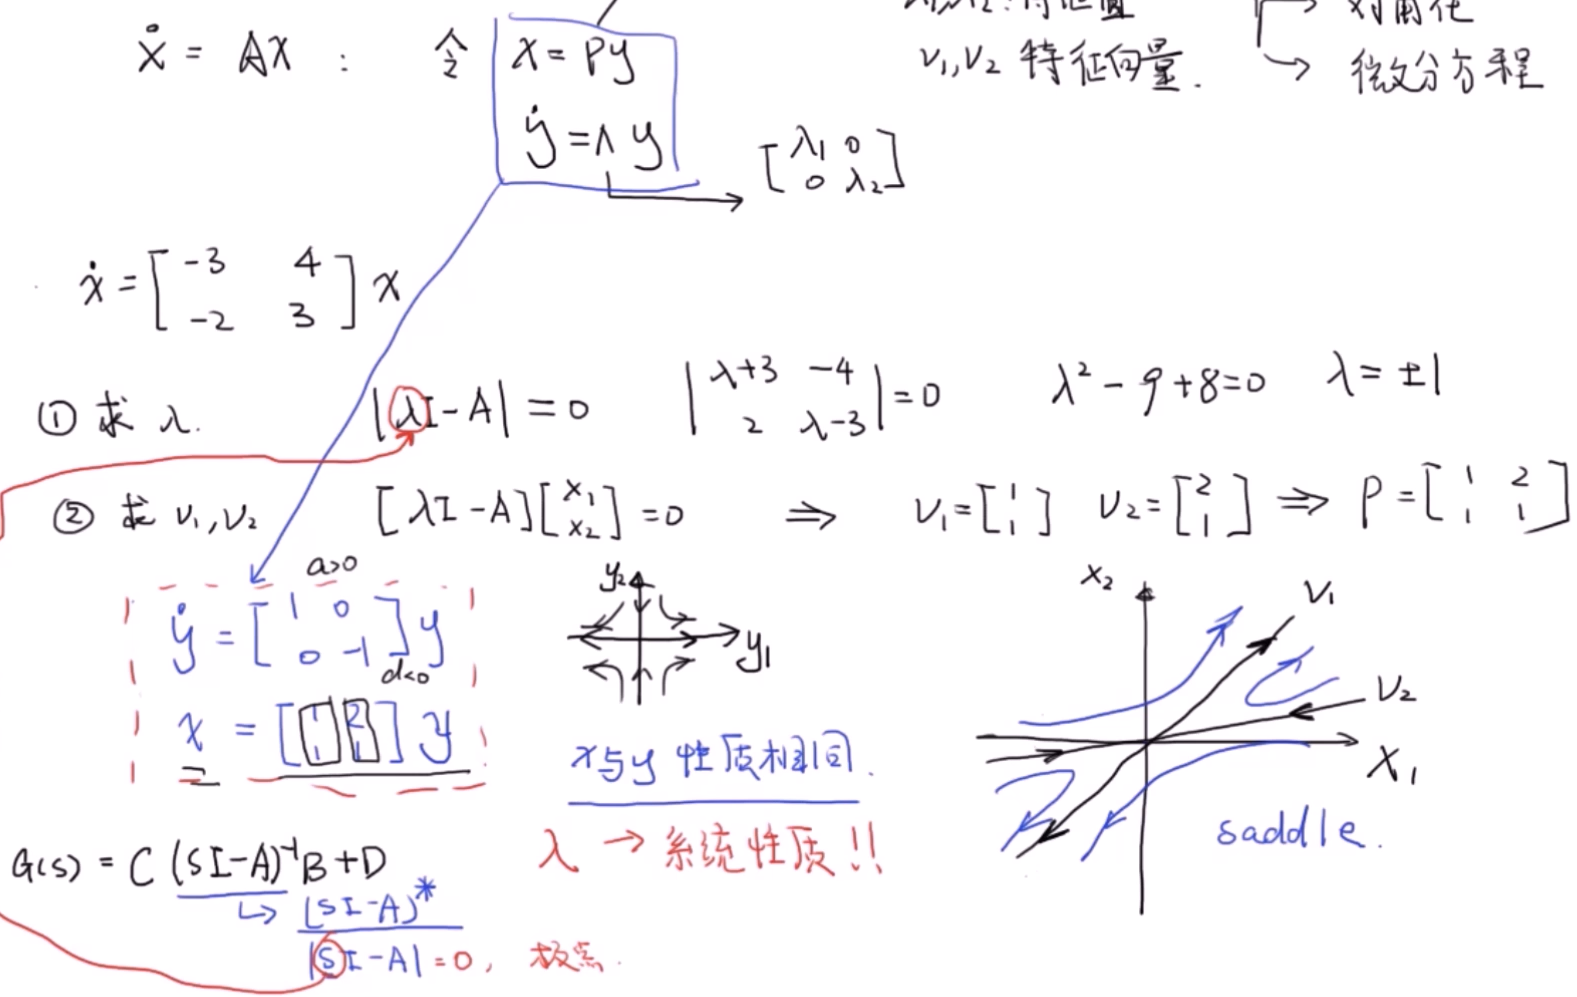 ẋ = AX : 令 x = Py
v₁,v₂ 特征向量.
对角化
微分方程
ẏ = Λ y
[λ₁ 0
0 λ₂]
ẋ = [-3 4
-2 3] x
① 求 λ. |λI-A| = 0 |λ+3 -4
2 λ-3| = 0 λ² - 9 + 8 = 0 λ = ±1
② 求 v₁,v₂ [λI-A][x₁
x₂] = 0 ⇒ v₁ = [1
1] v₂ = [2
1] ⇒ P = [1 2
1 1]
a>0
ẏ = [1 0
0 -1] y
d<0
x = [1 2
1 1] y
y₂
y₁
x与y 性质相同.
λ → 系统性质!!
x₂
v₁
v₂
X₁
saddle.
G(s) = C (SI-A)⁻¹B+D
↳ (SI-A)*
|SI-A| = 0, 极点.